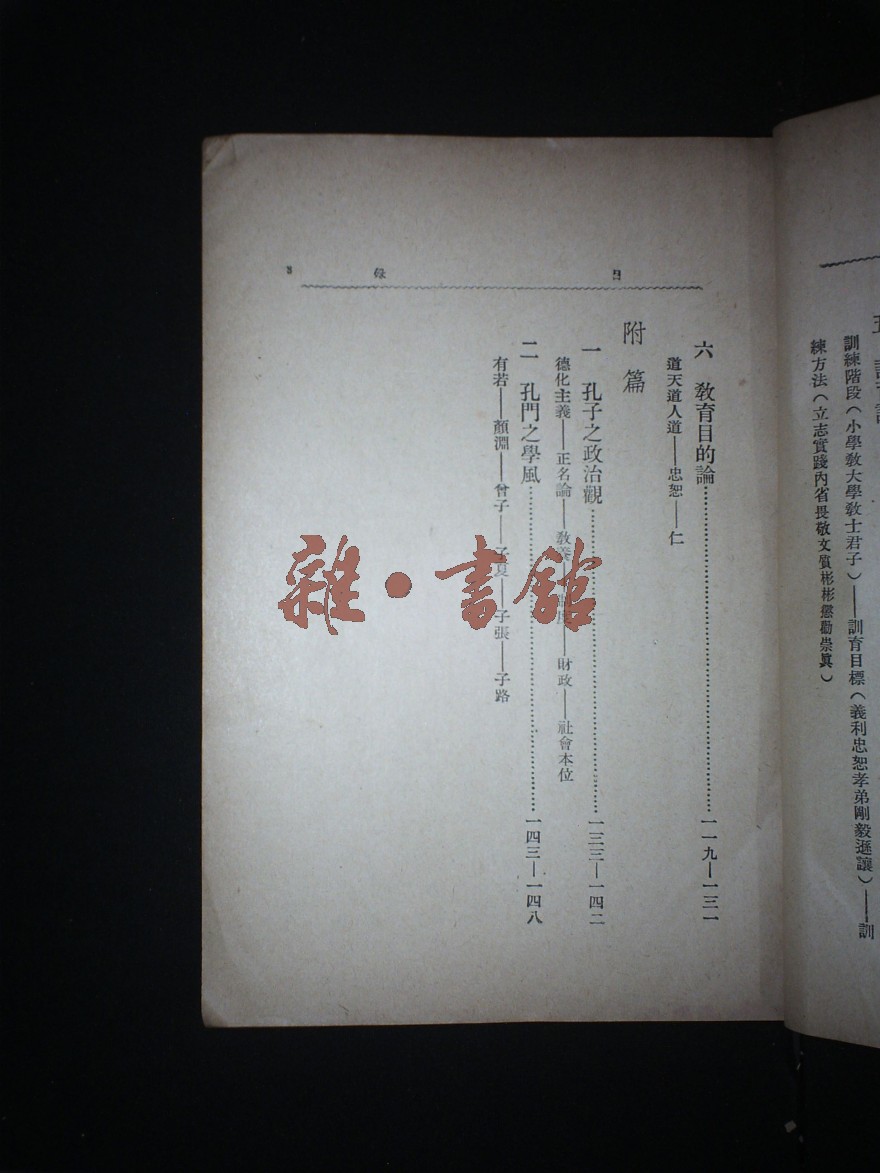 訓練階段(小學敎大學敎士君子)——訓育目標(義利忠恕孝弟剛毅遜讓)——訓
練方法(立志實踐內省畏敬文質彬彬懲勸崇眞)
目 錄 3
六 敎育目的論……一一九—一三一
道天道人道——忠恕——仁
附篇
一 孔子之政治觀……一三三—一四二
德化主義——正名論——敎養——制度——財政——社會本位
二 孔門之學風……一四三—一四八
有若——顏淵——曾子——子夏——子張——子路
雜·書館